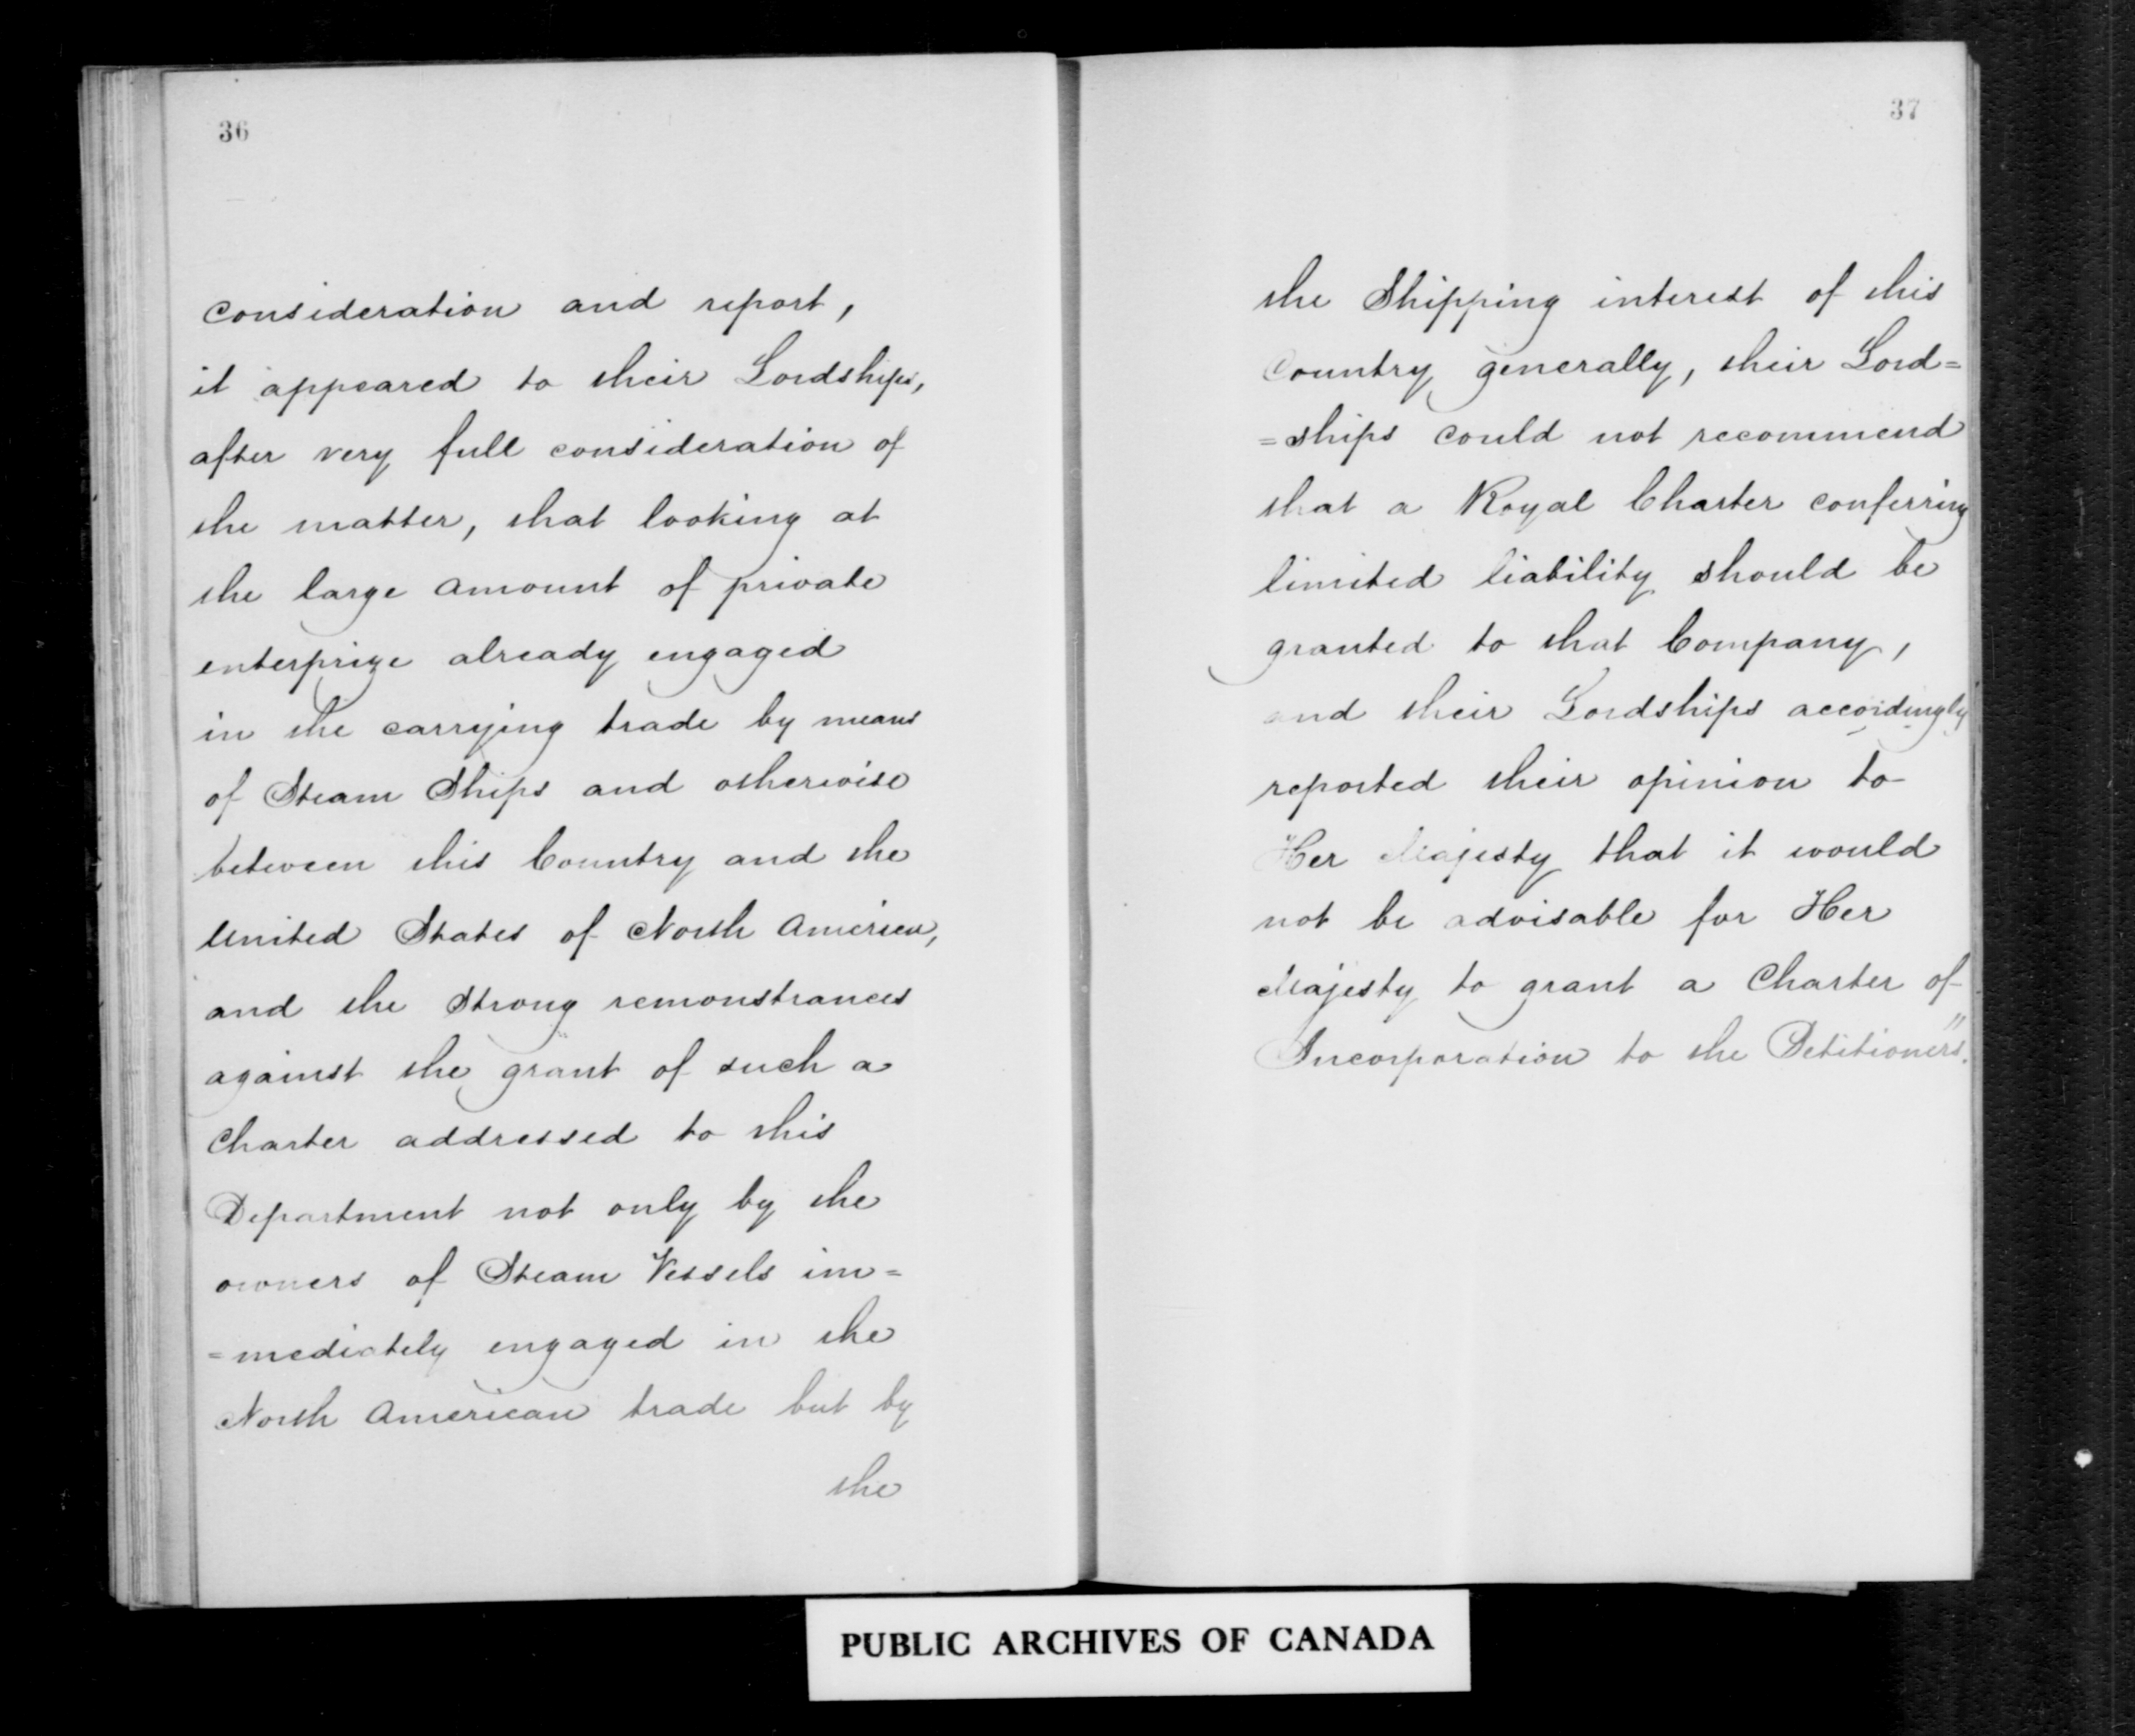 36
consideration and report,
it appeared to their Lordships,
after very full consideration of
the matter, that looking at
the large amount of private
enterprize already engaged
in the carrying trade by means
of Steam Ships and otherwise
between this Country and the
United States of North America,
and the strong remonstrances
against the grant of such a
Charter addressed to this
Department not only by the
owners of Steam Vessels im=
=mediately engaged in the
North American trade but by
the
37
the Shipping interest of this
Country generally, their Lord=
=ships could not recommend
that a Royal Charter conferring
limited liability should be
granted to that Company,
and their Lordships accordingly
reported their opinion to
Her Majesty that it would
not be advisable for Her
Majesty to grant a Charter of
Incorporation to the Petitioners".
PUBLIC ARCHIVES OF CANADA